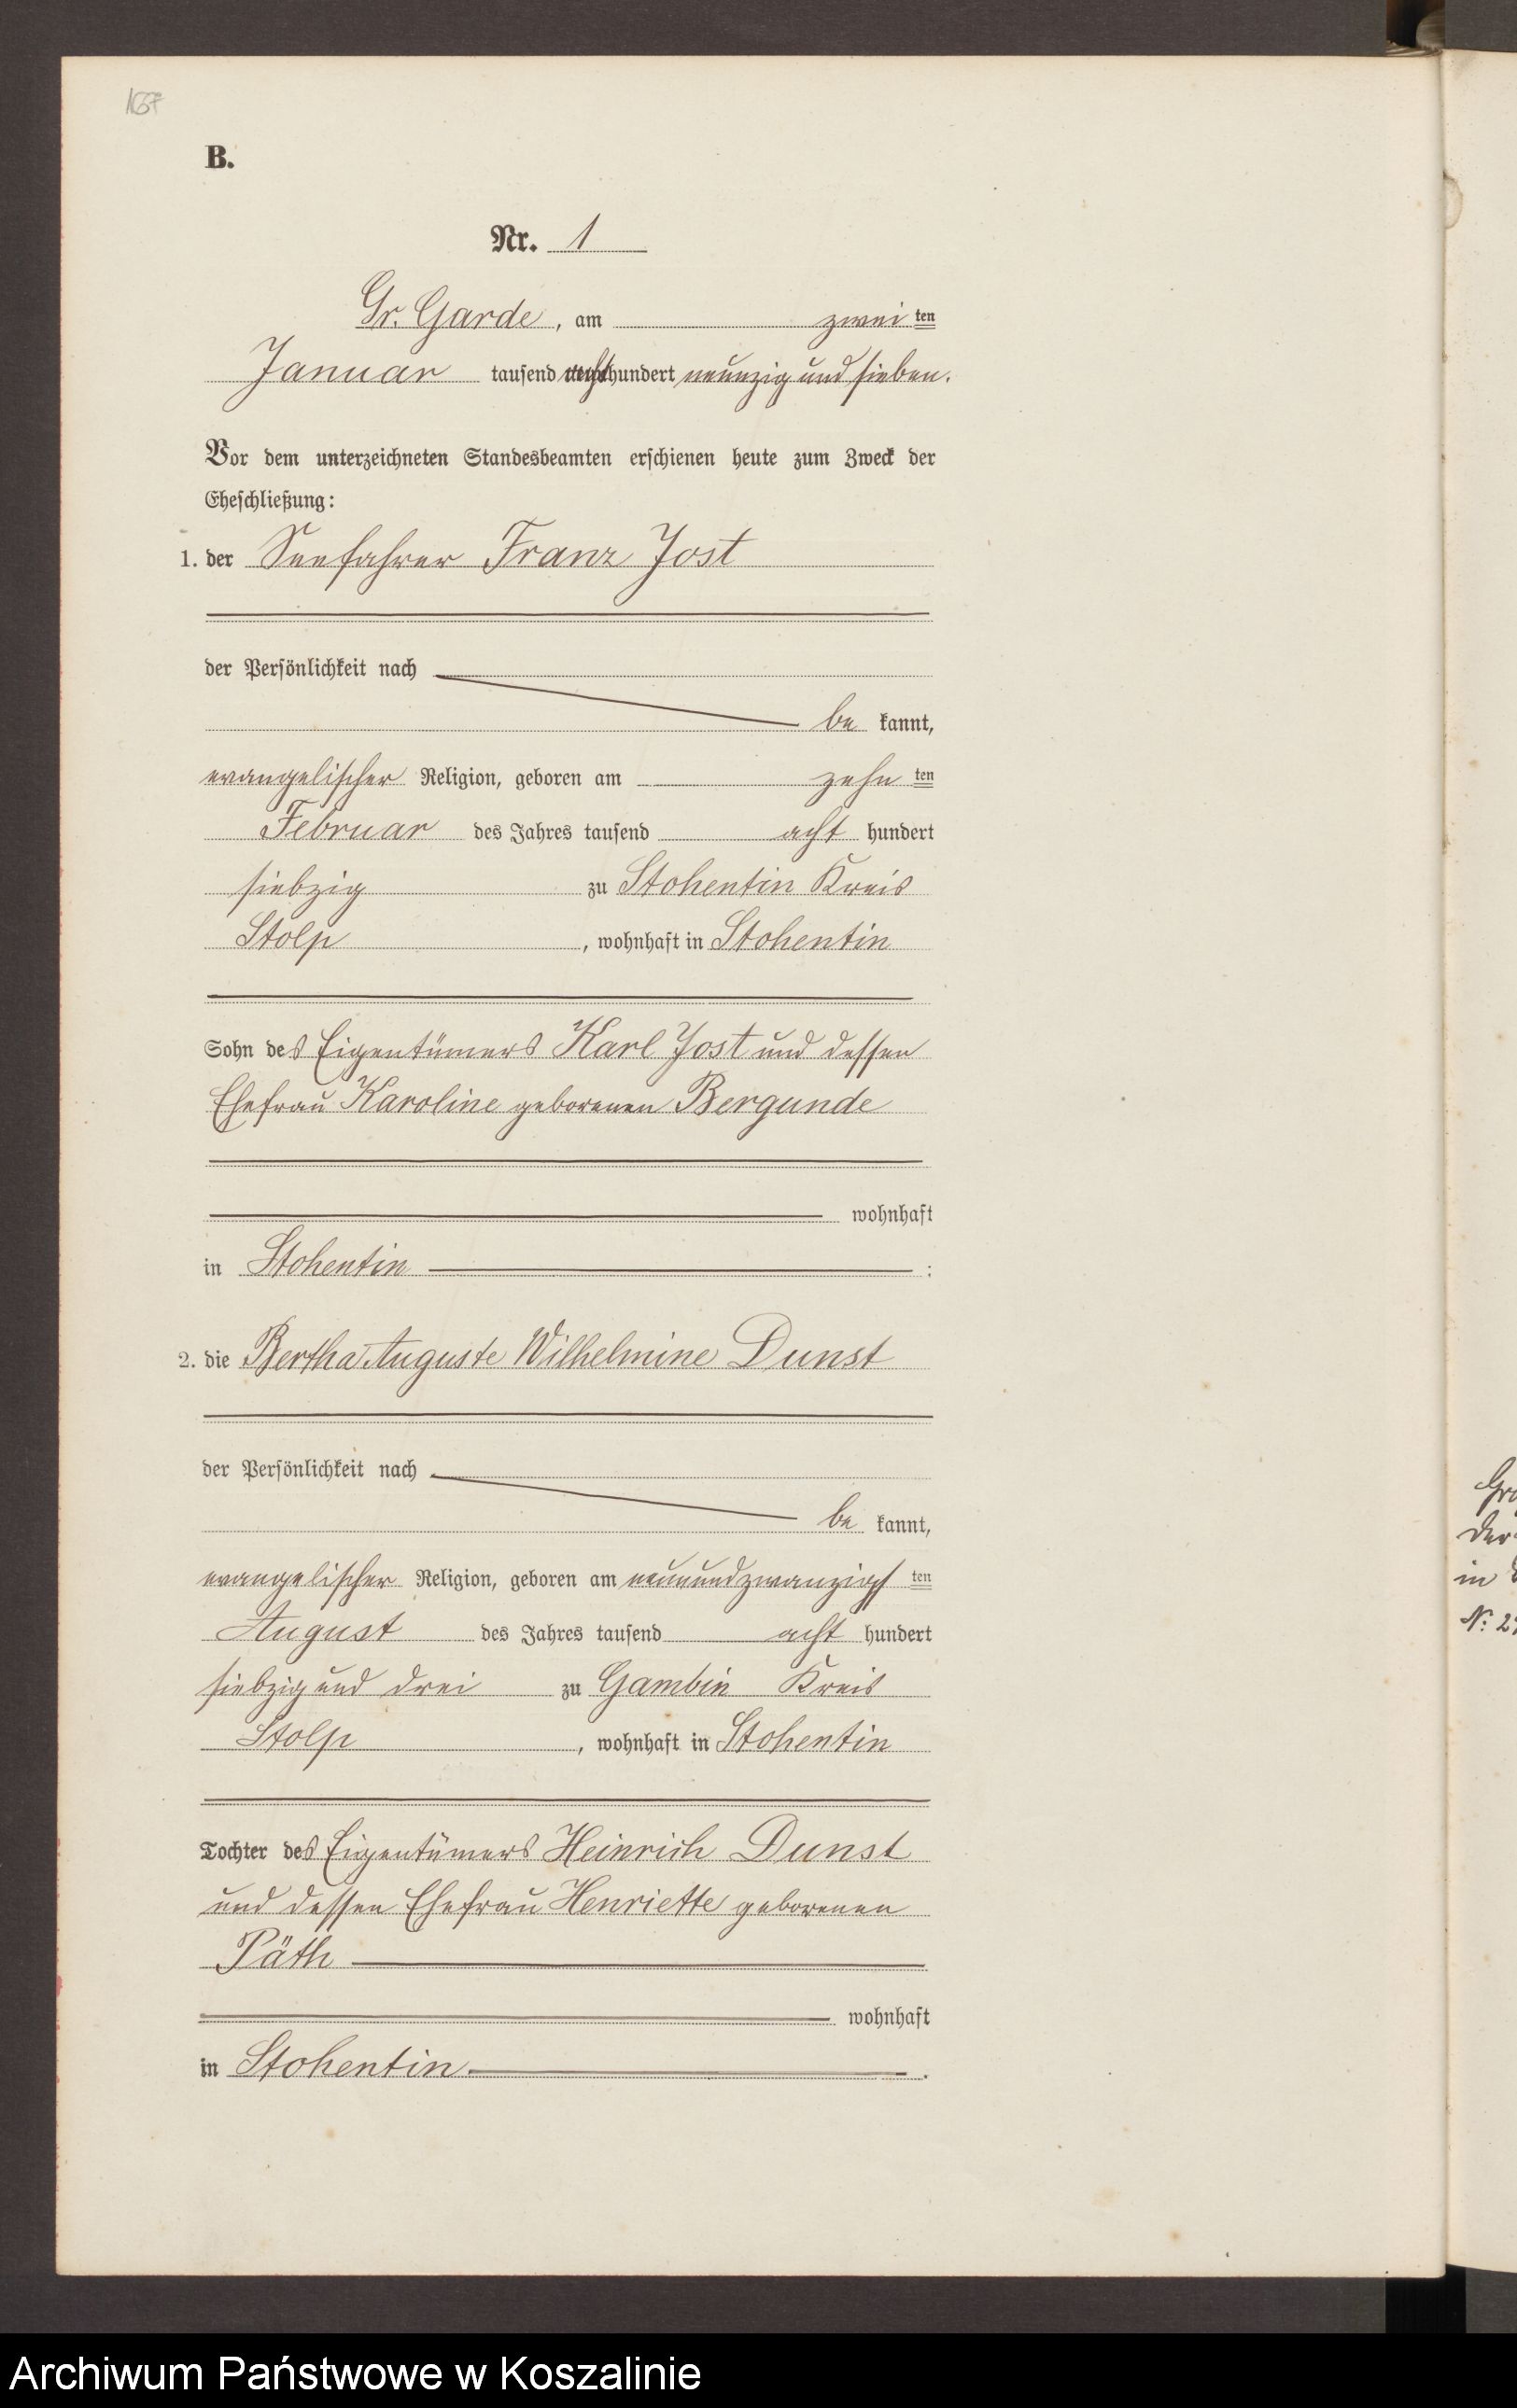 1657
B.
Nr. 1
Gr. Garde, am zwei ten
Januar tausend hundert neunzig und sieben.
Vor dem unterzeichneten Standesbeamten erschienen heute zum Zweck der
Eheschließung:
1. der Seefahrer Franz Jost
der Persönlichkeit nach
be kannt,
evangelischer Religion, geboren am zehn ten
Februar des Jahres tausend acht hundert
siebzig zu Stohentin Kreis
Stolp, wohnhaft in Stohentin
Sohn des Eigentümers Karl Jost und dessen
Ehefrau Karoline geborenen Bergunde
wohnhaft
in Stohentin :
2. die Bertha Auguste Wilhelmine Dunst
der Persönlichkeit nach
be kannt,
evangelischer Religion, geboren am neunundzwanzigst ten
August des Jahres tausend acht hundert
siebzig und drei zu Gambin Kreis
Stolp, wohnhaft in Stohentin
Tochter des Eigentümers Heinrich Dunst
und dessen Ehefrau Henriette geborenen
Päth
wohnhaft
in Stohentin .
der
in
N: 2
Archiwum Państwowe w Koszalinie